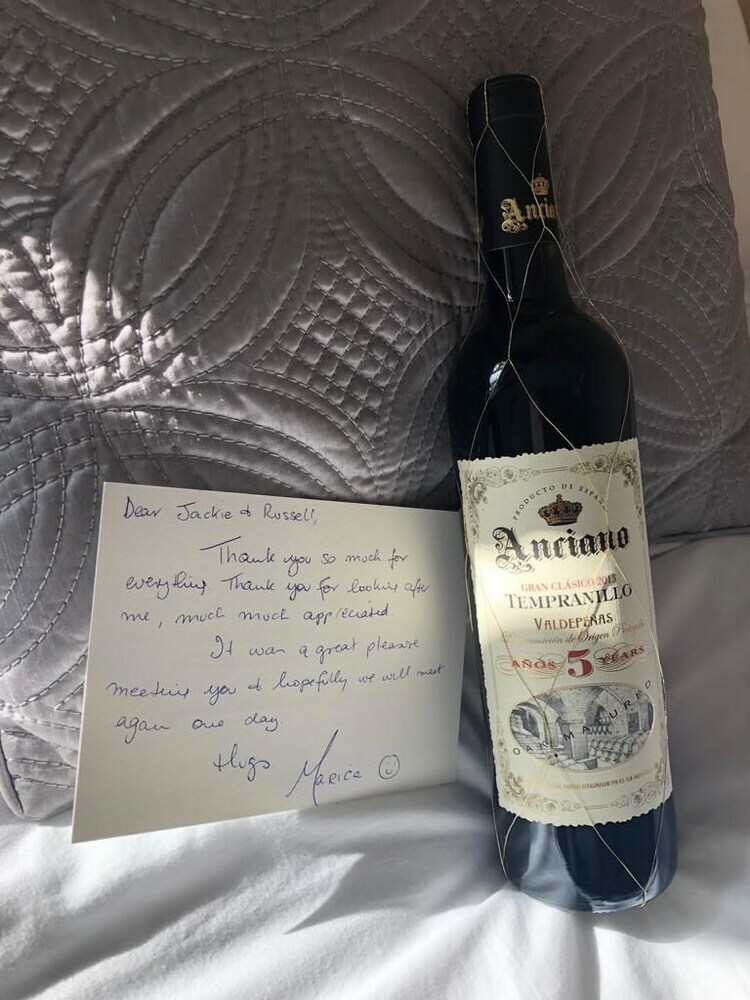 Dear Jackie & Russell,
Thank you so much for
everything Thank you for looking after
me, much much appreciated
It was a great pleasure
meeting you & hopefully we will meet
again one day.
Hugs
Marica
Ancia
PRODUCTO DE ESPA
Anciano
GRAN CLÁSICO 2013
TEMPRANILLO
VALDEPEÑAS
Denominación de Origen
AÑOS 5 YEARS
OAK MATURED